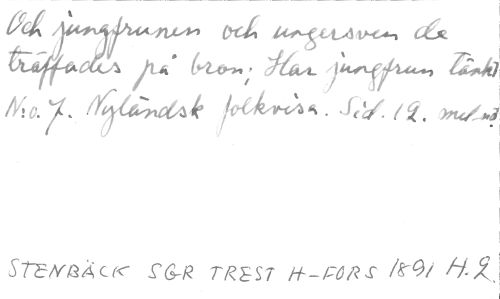 Och jungfrunen och ungersven de
träffades på bron; Har jungfrun tänkt
N:o 7. Nyländsk folkvisa. Sid. 12. med not
STENBÄCK SGR TREST H-FORS 1891 H. 2